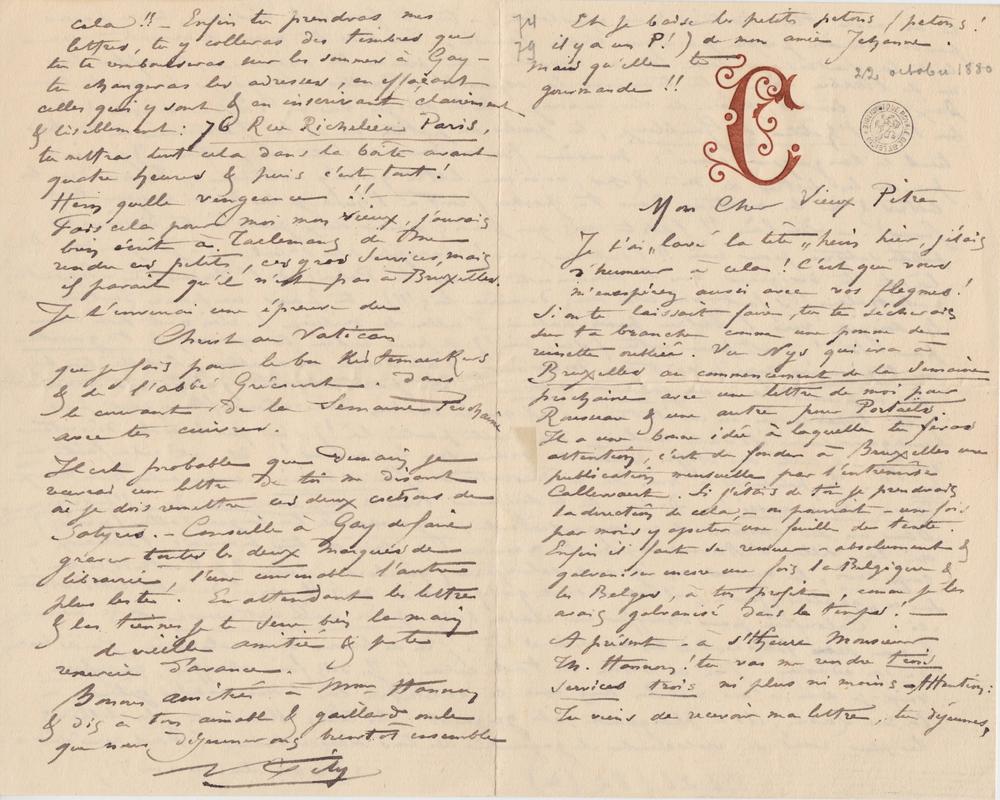 cela !! – Enfin tu prendras mes
lettres, tu y colleras des timbres que
tu te rembourseras sur les sommes à Gay –
tu changeras les adresses, en effaçant
celles qui y sont & en inscrivant clairement
& lisiblement : 76 Rue Richelieu Paris,
tu mettras tout cela dans la boîte avant
quatre heures & puis c'est tout !
Hein quelle vengeance !!!
Fais cela pour moi mon vieux, j'aurais
bien écrit à Taelemans de me
rendre ces petits, ces gros services, mais
il parait qu'il n'est pas à Bruxelles.
Je t'enverrai une épreuve du
Christ au Vatican
que je fais pour le bon Kistemaeckers
& de l'abbé Grécourt. Dans
le courant de la Semaine prochaine
avec tes cuivres.
Il est probable que Demain je
recevrai une lettre de toi me disant
où je dois remettre ces deux cochons de
Satyres. – Conseille à Gay de faire
graver toutes les deux marques de
librairie, l'une ensemble l'autre
plus leste. En attendant les lettres
& les tiennes je te serre bien la main
de vieille amitié & te
remercie d'avance.
Bonnes amitiés à Mme Hannon
& dis à ton aimable & gaillard oncle
que nous déjeunerons bientôt ensemble
Fély
74
79
Et je baise les petits petons (petons !
il y a un P!) de mon amie Jehanne.
Mais qu'elle te
gourmande !!
22 octobre 1880
C
Mon Cher Vieux Pître
Je t'ai „lavé la tête„ hein hier, j'étais
d'humeur à cela ! C'est que vous
m'exaspérez aussi avec vos flegmes !
Si on te laissait faire, tu te sécherais
sur ta branche comme une pomme de
reinette oubliée. Vu Nys qui ira à
Bruxelles au commencement de la Semaine
prochaine avec une lettre de moi pour
Rousseau & une autre pour Portaels.
Il a une bonne idée à laquelle tu feras
attention, c'est de fonder à Bruxelles une
publication mensuelle par l'entremise
Callewaert. Si j'étais de toi je prendrais
la direction de cela – on pourrait – une fois
par mois y ajouter une feuille de texte.
Enfin il faut se remuer – absolument &
galvaniser encore une fois la Belgique &
les Belges, à ton profit, comme je les
avais galvanisés dans le temps ! –
A présent – à s't'heure Monsieur
Th. Hannon ! tu vas me rendre trois
services trois ni plus ni moins. Attention :
Tu viens de recevoir ma lettre, tu déjeunes,